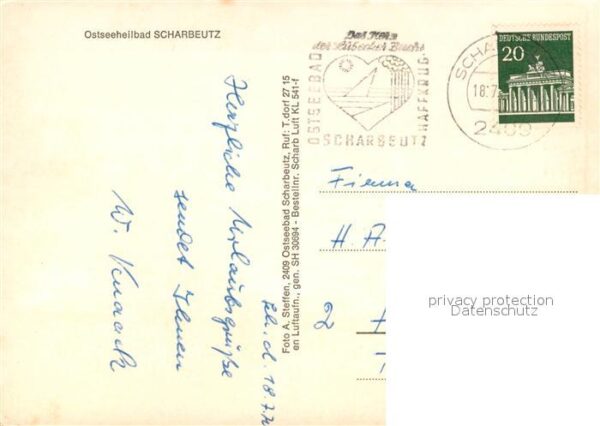 Ostseeheilbad SCHARBEUTZ
Herzliche Urlaubsgrüße
sendet Ihnen
W. Knaack
Foto A. Steffen, 2409 Ostseebad Scharbeutz, Ruf: T.dorf 27 15
en Luftaufn., gen. SH 30694 - Bestellnr. Scharb Luft KL 541-f
Das Herz
der Lübecker Bucht
OSTSEEBAD
HAFFKRUG
SCHARBEUTZ
DEUTSCHE BUNDESPOST
20
18.7
2409
Firma
H. A.
2
privacy protection
Datenschutz